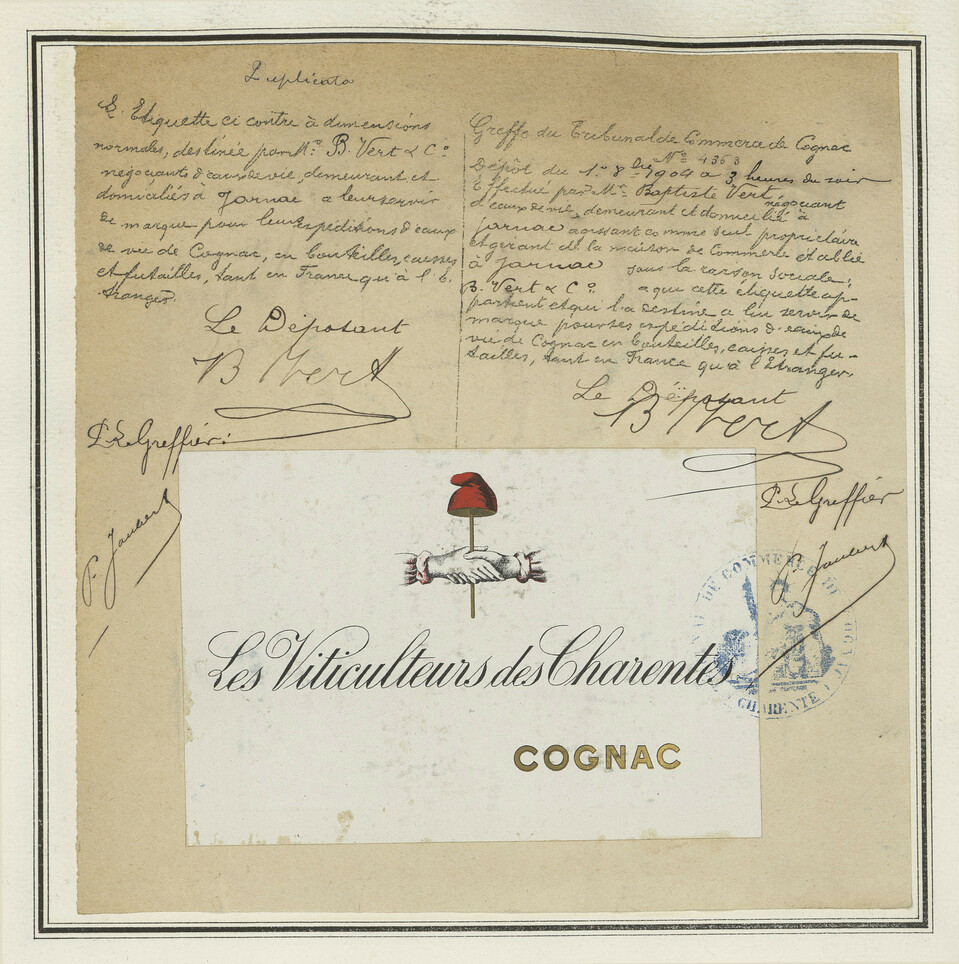 Duplicata
L'Etiquette ci contre à dimensions
normales, destinée par Mrs B. Vert & Cº
négociants d'eaux de vie, demeurant et
domiciliés à Jarnac a leur servir
de marque pour leurs expéditions d'eaux
de vie de Cognac, en bouteilles, caisses
et futailles, tant en France qu'à l'E
tranger.
Le Déposant
B Vert
P. Le Greffier:
P. Jaubert
Greffe du Tribunal de Commerce de Cognac
Nº 4363
Dépôt du 1er 8bre 1904 a 3 heures du soir
Effectué par Mr Baptiste Vert négociant
d'eaux de vie, demeurant et domicilié à
Jarnac agissant comme seul propriétaire
et gérant de la maison de Commerce établie
à Jarnac sous la raison sociale:
B. Vert & Cº a que cette étiquette ap-
partient et qui l'a destine a lui servir de
marque pour ses expéditions d'eaux de
vie de Cognac en bouteilles, caisses et fu-
tailles, tant en France qu'à l'Etranger.
Le Déposant
B Vert
P. Le Greffier
P. Jaubert
Les Viticulteurs des Charentes
COGNAC
DE COMMERCE DE
CHARENTE